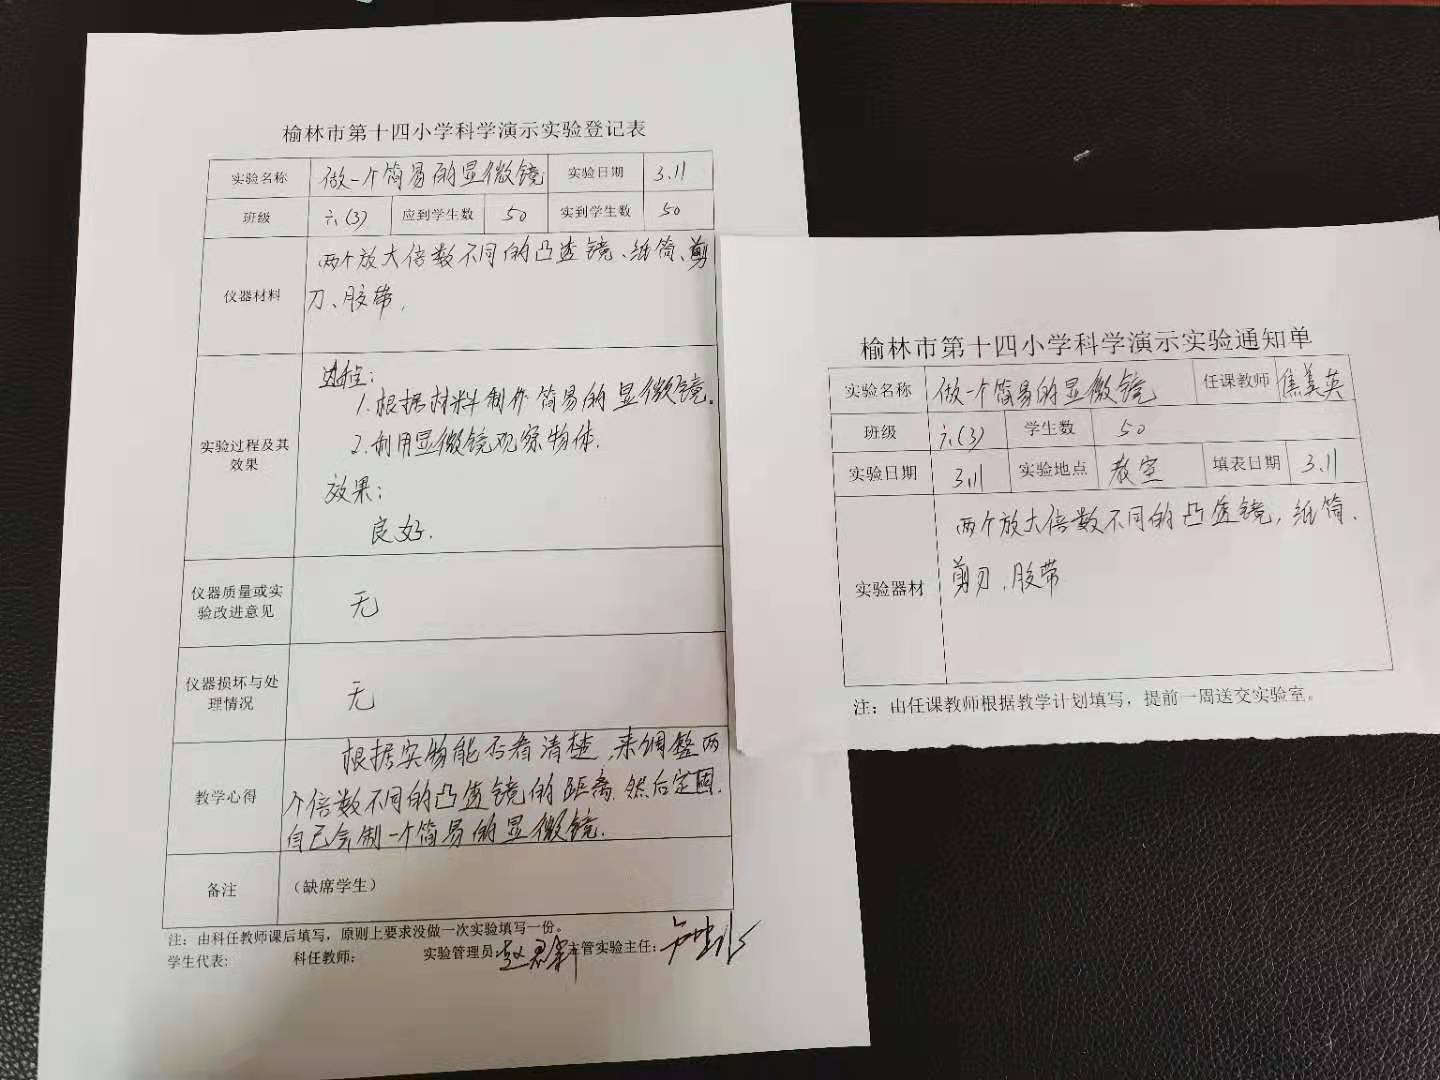 榆林市第十四小学科学演示实验登记表
实验名称 做一个简易的显微镜 实验日期 3.11
班级 六(3) 应到学生数 50 实到学生数 50
两个放大倍数不同的凸透镜、纸筒、剪
仪器材料 刀、胶带.
过程:
1.根据材料制作简易的显微镜.
2.利用显微镜观察物体.
实验过程及其
效果
效果:
良好.
仪器质量或实
验改进意见
无
仪器损坏与处
理情况
无
教学心得
根据实物能否看清楚,来调整两
个倍数不同的凸透镜的距离.然后定固.
自己会制一个简易的显微镜.
备注 (缺席学生)
注:由科任教师课后填写,原则上要求没做一次实验填写一份。
学生代表: 科任教师: 实验管理员: 主管实验主任:
榆林市第十四小学科学演示实验通知单
实验名称 做一个简易的显微镜 任课教师 焦美英
班级 六(3) 学生数 50
实验日期 3.11 实验地点 教室 填表日期 3.11
两个放大倍数不同的凸透镜,纸筒.
实验器材 剪刀.胶带
注:由任课教师根据教学计划填写,提前一周送交实验室。